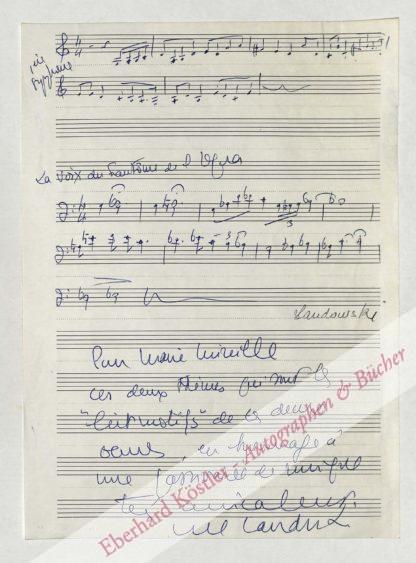 La Voix du Fantôme de l'Opéra
Landowski
Pour Marie Mireille
ces deux thèmes qui sont les
"leitmotifs" de ces deux
œuvres, en hommage à
une de musique
très amicalement
M Landowski
Eberhard Köstler - Autographen & Bücher